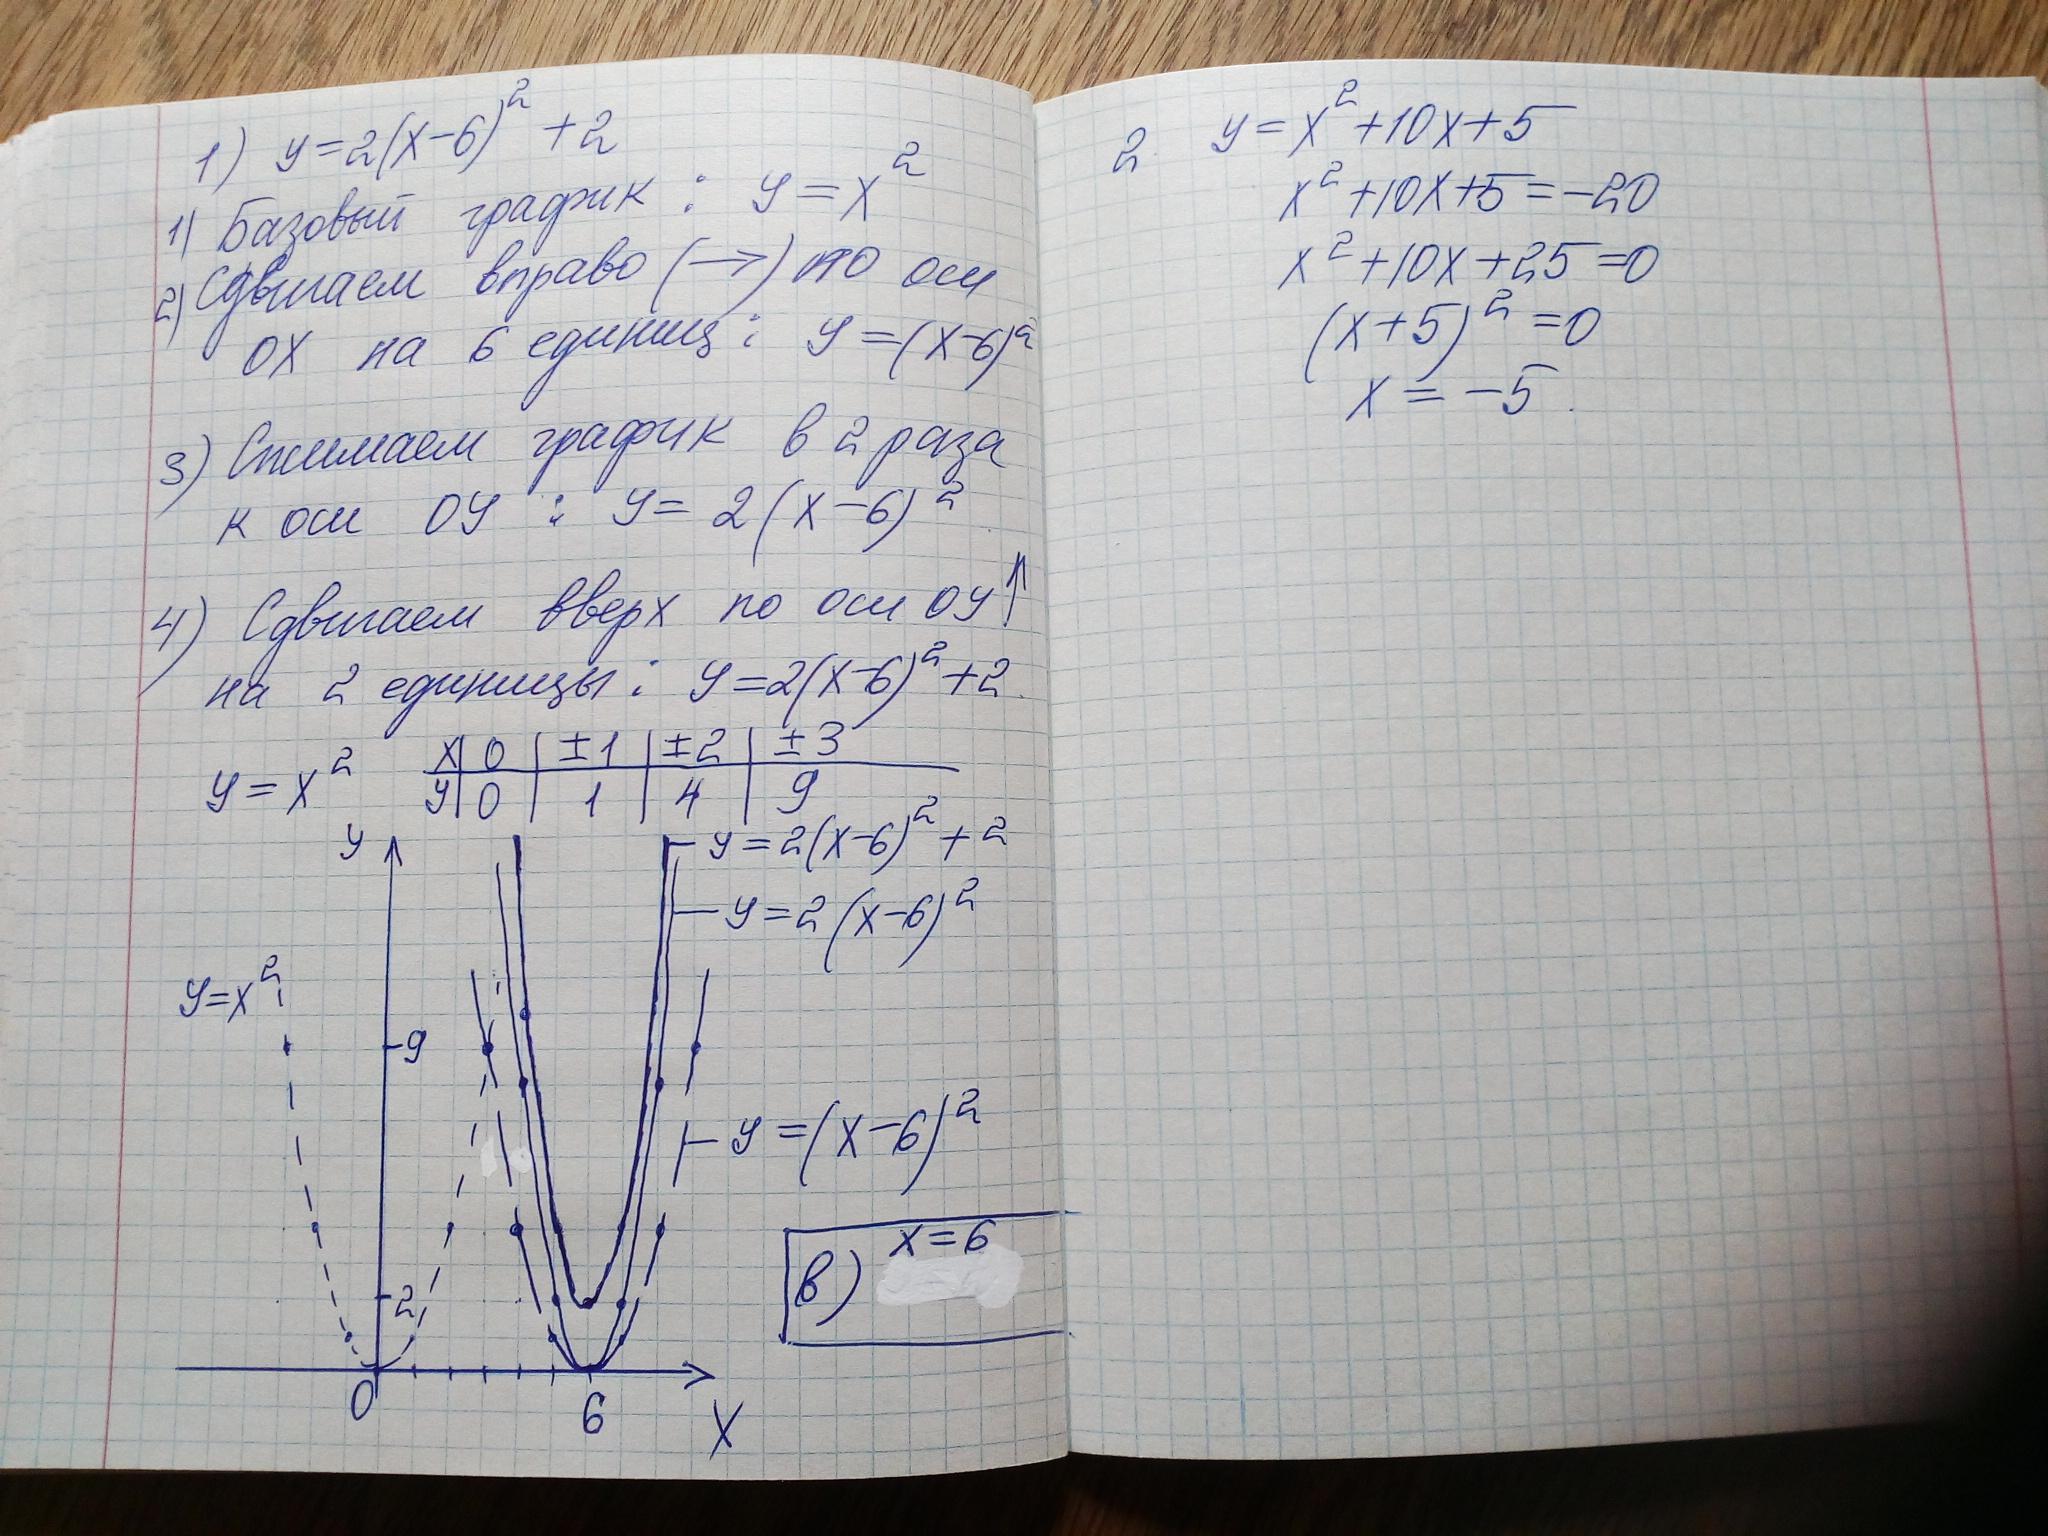 1) y=2(x-6)²+2
1) Базовый график : y=x²
2) Сдвигаем вправо (→) по оси
OX на 6 единиц : y=(x-6)²
3) Сжимаем график в 2 раза
к оси OY : y= 2(x-6)²
4) Сдвигаем вверх по оси OY↑
на 2 единицы : y=2(x-6)²+2.
y=x² x|0|±1|±2|±3
y|0|1|4|9
y
y=2(x-6)²+2
y=2(x-6)²
y=x²
9
y=(x-6)²
в) x=6
2
0 6 X
2. y=x²+10x+5
x²+10x+5=-20
x²+10x+25=0
(x+5)²=0
x=-5.